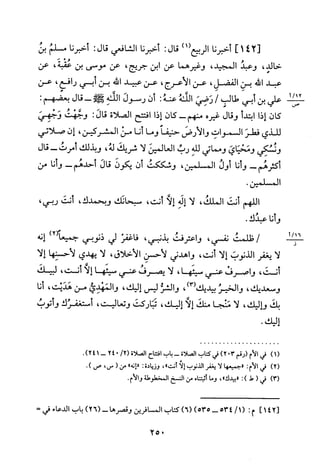 [١٤٢] أخبرنا الربيع (١) قال: أخبرنا الشافعي قال: أخبرنا مسلمُ بنُ
خالدٍ، وعبدُ المجيد، وغيرهما عن ابن جريج، عن موسى بن عُقْبة، عن
عبد الله بن الفضل، عن الأعرج، عن عبيد الله بن أبي رافع، عن
علي بن أبي طالب / رَضِيَ اللَّهُ عنهُ: أن رسولَ الله ﷺ ــ قال بعضهم:
١/١٢
ص
كان إذا ابتدأ وقال غيره منهم ــ كان إذا افتتح الصلاة قال: وجَّهْتُ وجْهِيَ
للذي فطرَ السمواتِ والأرضَ حنيفاً وما أنا منَ المشركين، إن صلاتي
ونُسُكي ومَحْيَايَ ومماتي لله ربِّ العالمينَ لا شريكَ لهُ، وبذلك أمرتُ ــ قال
أكثرُهُم ــ وأنا أولُ المسلمين، وشككتُ أن يكونَ قالَ أحدهُم ــ وأنا من
المسلمين.
اللهم أنتَ الملكُ، لا إلٰهَ إلاَّ أنت، سبحانَكَ وبحمدك، أنتَ ربي،
وأنا عبدُك.
/ ظلمتُ نفسي، واعترفتُ بذنبي، فاغفرْ لي ذنوبي جميعاً(٢) إنه
لا يغفر الذنوبَ إلاَّ أنت، واهدني لأحسنِ الأخلاقِ، لا يهدي لأحسنها إلاَّ
أنتَ، واصرفْ عني سيِّئَها، لا يصرفُ عني سيِّئَها إلاَّ أنت، لبيكَ
وسعديك، والخيرُ بيديكَ(٣)، والشرُّ ليس إليك، والمَهْدِيُّ من هَدَيْتَ، أنا
بك وإليك، لا مَنْجا منك إلاَّ إليك، تباركتَ وتعاليت، أستغفرُك وأتوبُ
إليك.
(١) في الأم (رقم ٢٠٣) في كتاب الصلاة ــ باب افتتاح الصلاة (٢/ ٢٤٠ ــ ٢٤١).
(٣) في (ط): «بيدك»، وما أثبتناه من النسخ المخطوطة والأم.
[١٤٢] م: (١/ ٥٣٤ ــ ٥٣٥) (٦) كتاب المسافرين وقصرها ــ (٢٦) باب الدعاء في =
٢٥٠